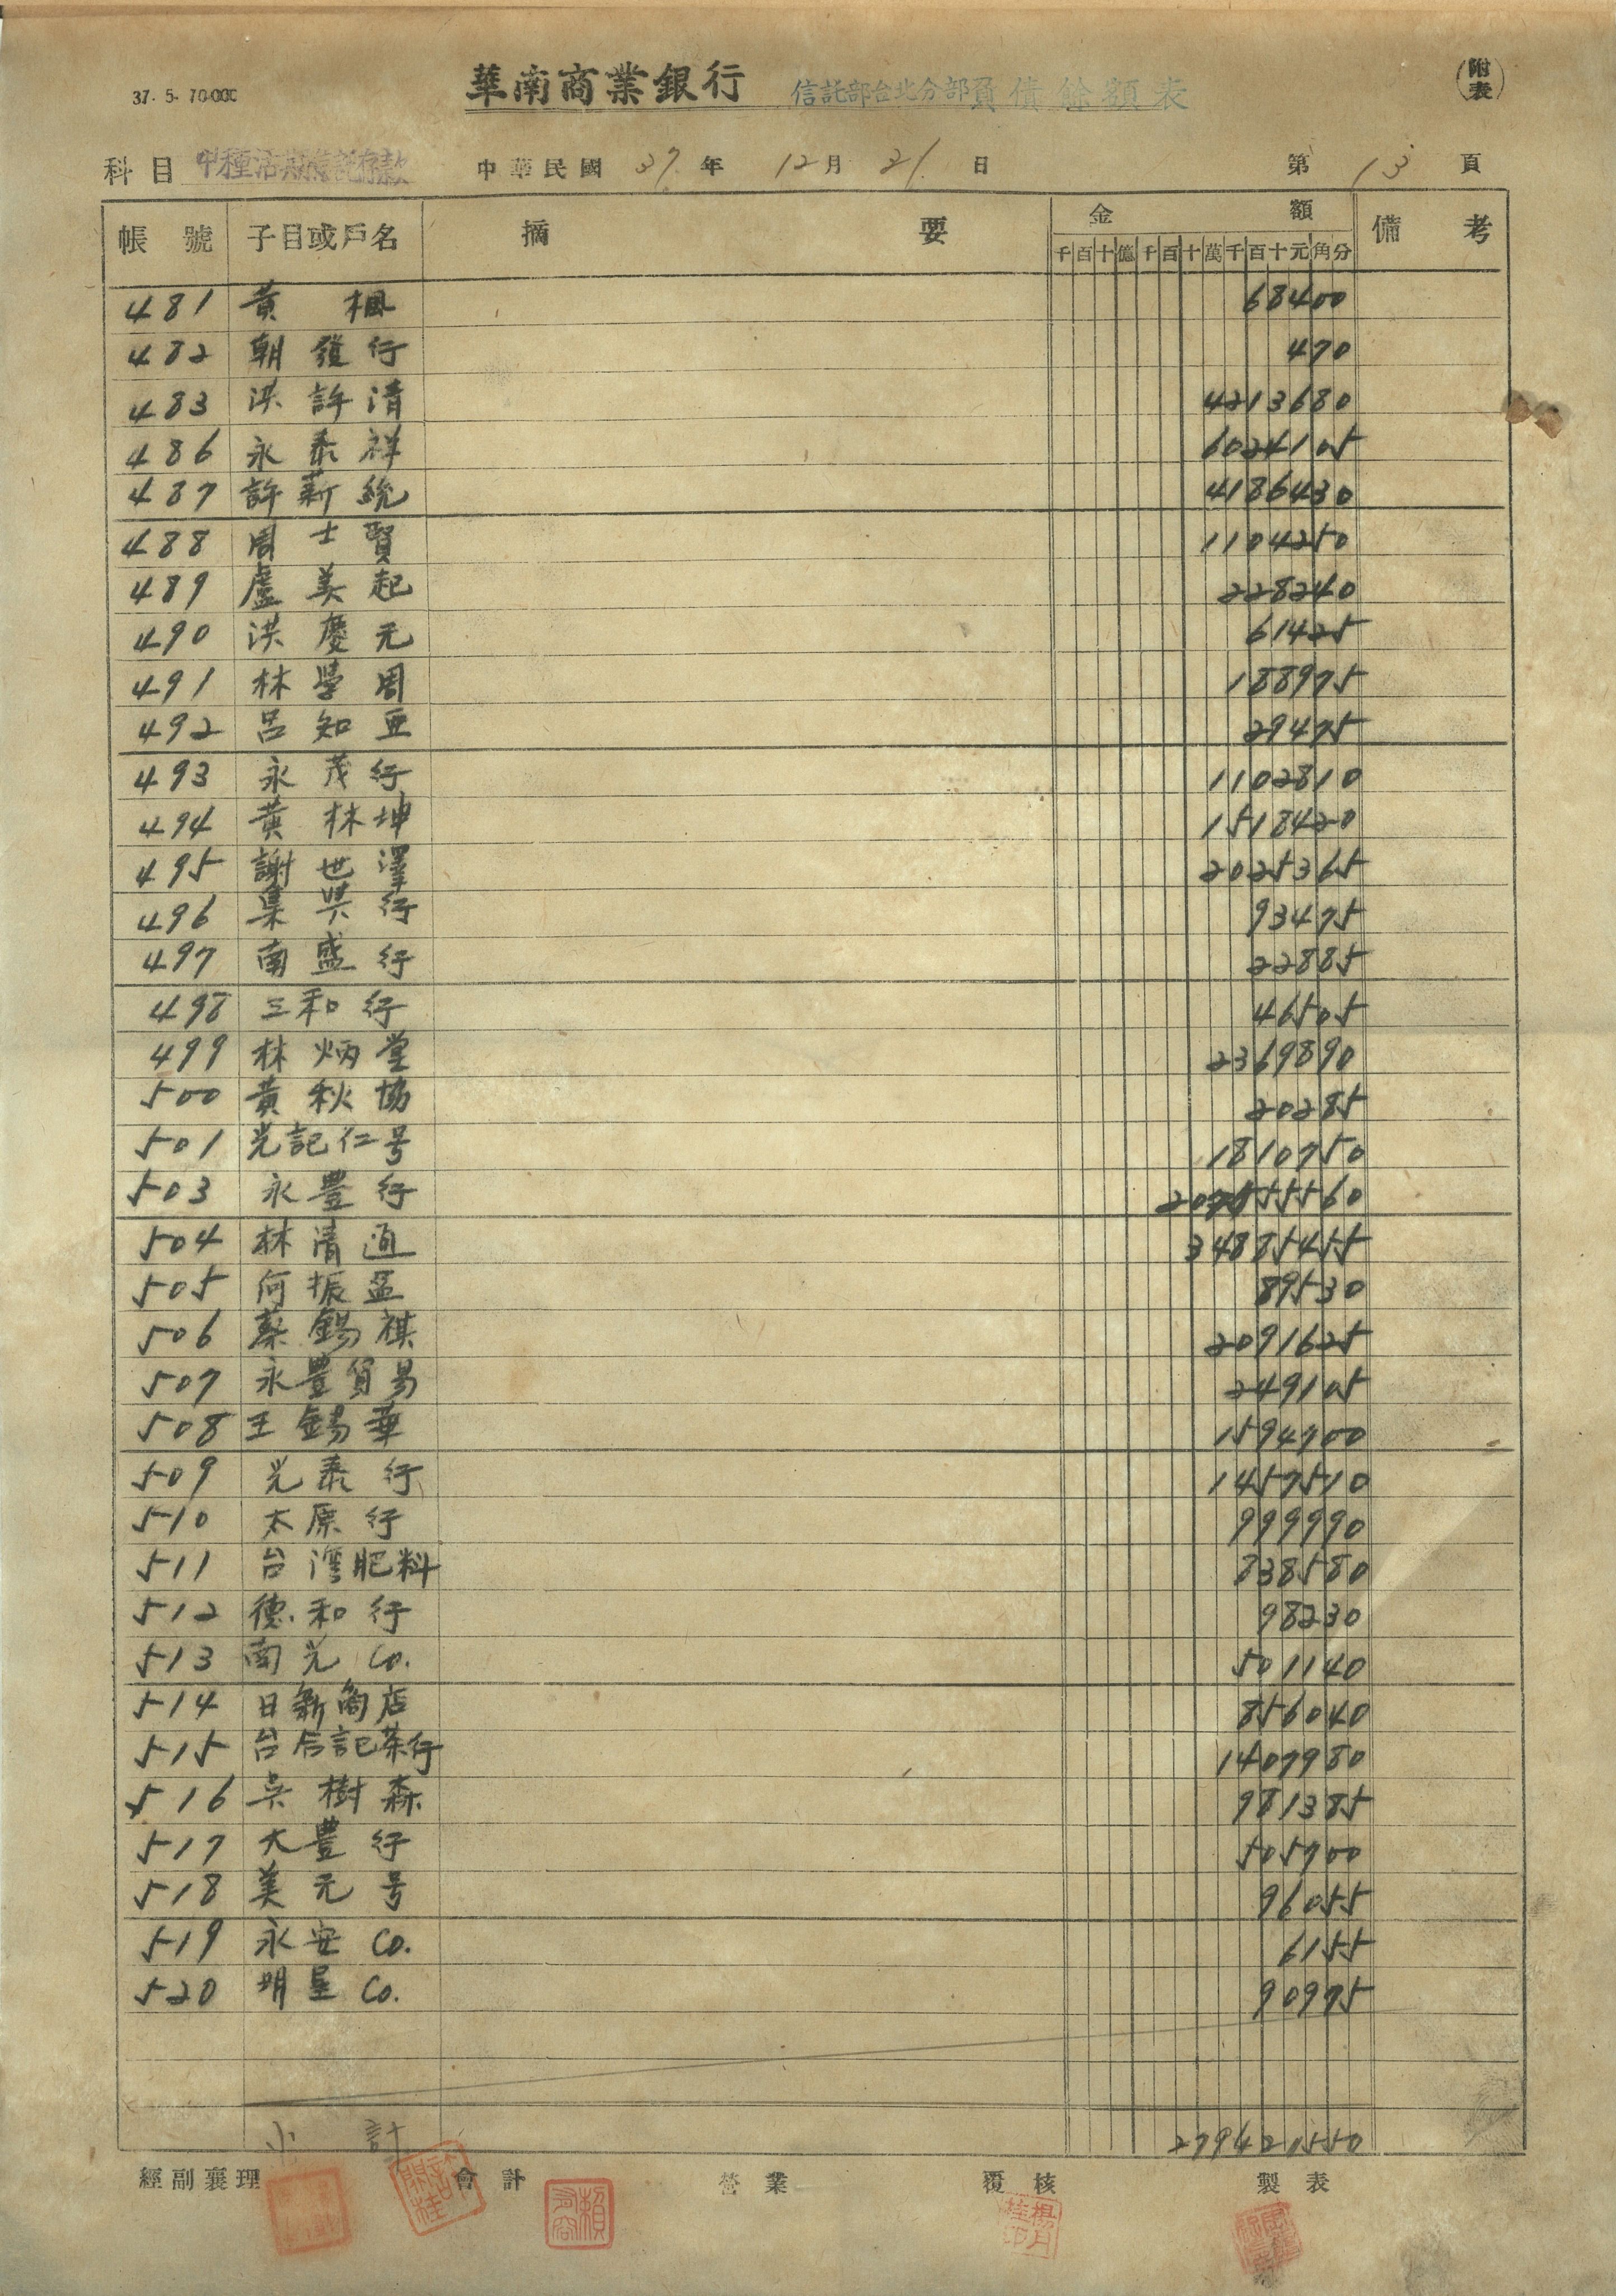 37. 5. 70.000
華南商業銀行 信託部台北分部負債餘額表
(附表)
科目 甲種活期信託存款 中華民國 37年 12月 21日 第 13 頁
帳號 子目或戶名 摘要 金額 備考
千百十億千百十萬千百十元角分
481 黃楓 68400
482 朝發行 470
483 洪許清 4213680
486 永泰祥 6024105
487 許薪統 4186430
488 周士賢 1104250
489 盧美起 228240
490 洪慶元 61425
491 林學周 188975
492 呂知亜 29475
493 永茂行 1102810
494 黃林坤 1518420
495 謝世澤 2025365
496 集興行 93475
497 南盛行 22885
498 三和行 46505
499 林炳堂 2369890
500 黃秋協 20285
501 光記仁号 1810750
503 永豊行
504 林清 34885455
505 何振 89530
506 蔡錫祺 2091625
507 永豊貿易 249105
508 王錫華 1594700
509 光泰行 1457510
510 太原行 999990
511 台湾肥料 838580
512 德和行 98230
513 南光 Co. 501140
514 日新商店 856040
515 台合記茶行 1407980
516 吳樹森 981385
517 大豊行 505700
518 美元号 96055
519 永安 Co. 6155
520 明星 Co. 90975
小計 279421550
經副襄理 會計 營業 覆核 製表
許開桂
賴
楊月桂印